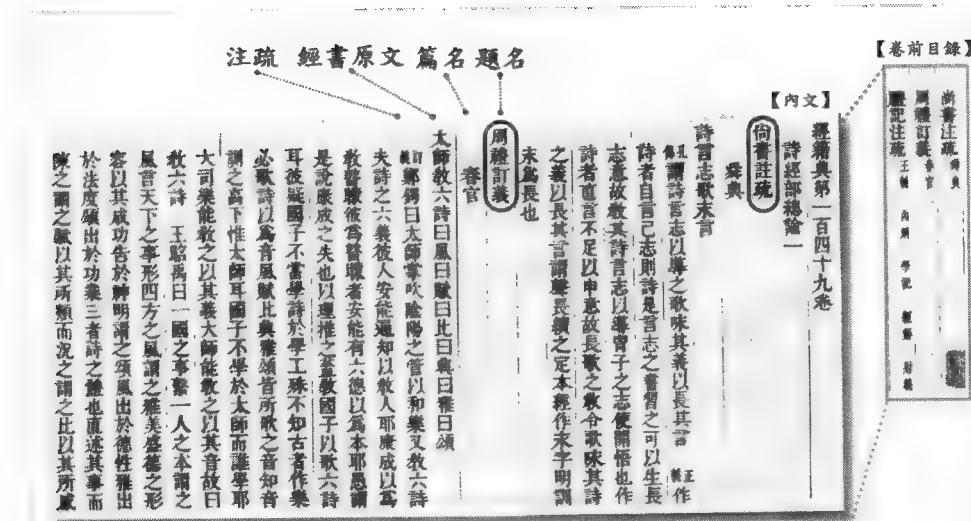 題名
篇名
經書原文
注疏
【卷前目錄】
尚書注疏 舜典
周禮訂義 春官
禮記注疏 王制 內則 學記
【內文】
經籍典第一百四十九卷
詩經部總論一
尚書註疏
舜典
詩言志歌永言
傳謂詩言志以導之歌詠其義以長其言 正義作
詩者自言己志則詩是言志之書習之可以生長
志意故教其詩言志以導冑子之志使開悟也作
詩者直言不足以申意故長歌之教令歌詠其詩
之義以長其言謂聲長續之定本經作永字明訓
永爲長也
周禮訂義
春官
太師教六詩曰風曰賦曰比曰興曰雅曰頌
訂義鄭鍔曰太師掌吹陰陽之管以和樂又教六詩
夫詩之六義彼人安能遍知以敎人耶康成以爲
教瞽矇彼爲瞽矇者安能有六德以爲本耶愚謂
是說康成之失也以理推之蓋教國子以歌六詩
耳彼疑國子不當學詩於學工殊不知古者作樂
必歌詩以爲音風賦比興雅頌皆所歌之音知音
訓之高下惟太師耳國子不學於太師而誰學耶
大司樂能教之以其義大師能教之以其音故曰
教六詩 王昭禹曰一國之事繫一人之本謂之
風言天下之事形四方之風謂之雅美盛德之形
容以其成功告於神明謂之頌風出於德性雅出
於法度頌出於功業三者詩之體也直述其事而
陳之謂之賦以其所類而況之謂之比以其所感